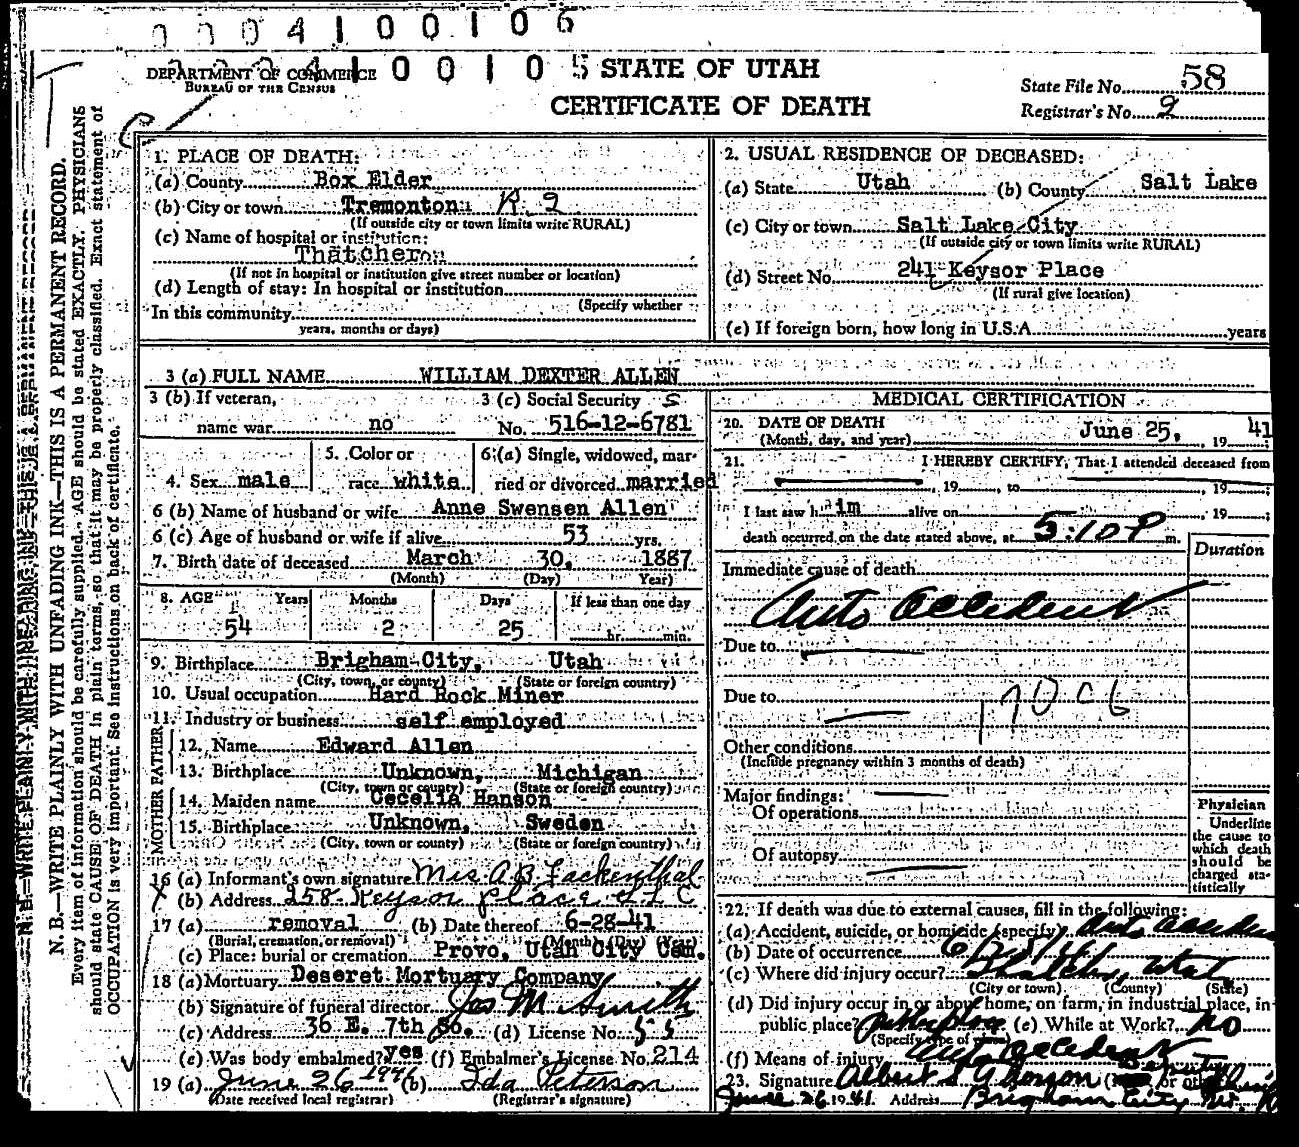 0004100106
004100105
DEPARTMENT OF COMMERCE
BUREAU OF THE CENSUS
STATE OF UTAH
CERTIFICATE OF DEATH
State File No. 58
Registrar's No. 2
N. B.—WRITE PLAINLY WITH UNFADING INK—THIS IS A PERMANENT RECORD.
Every item of information should be carefully supplied. AGE should be stated EXACTLY. PHYSICIANS
should state CAUSE OF DEATH in plain terms, so that it may be properly classified. Exact statement of
OCCUPATION is very important. See instructions on back of certificate.
1. PLACE OF DEATH:
(a) County Box Elder
(b) City or town Tremonton R. 2
(If outside city or town limits write RURAL)
(c) Name of hospital or institution:
Thatcher
(If not in hospital or institution give street number or location)
(d) Length of stay: In hospital or institution
(Specify whether
In this community
years, months or days)
2. USUAL RESIDENCE OF DECEASED:
(a) State Utah (b) County Salt Lake
(c) City or town Salt Lake City
(If outside city or town limits write RURAL)
(d) Street No. 241 Keysor Place
(If rural give location)
(e) If foreign born, how long in U.S.A. years
3 (a) FULL NAME WILLIAM DEXTER ALLEN
3 (b) If veteran, 3 (c) Social Security S
name war no No. 516-12-6781
4. Sex male 5. Color or race white 6.(a) Single, widowed, married or divorced married
6 (b) Name of husband or wife Anne Swensen Allen
6 (c) Age of husband or wife if alive 53 yrs.
7. Birth date of deceased March 30, 1887
(Month) (Day) Year)
8. AGE Years Months Days If less than one day
54 2 25 hr. min.
9. Birthplace Brigham City, Utah
(City, town, or county) (State or foreign country)
10. Usual occupation Hard Rock Miner
11. Industry or business self employed
FATHER
12. Name Edward Allen
13. Birthplace Unknown, Michigan
(City, town or county) (State or foreign country)
MOTHER
14. Maiden name Cecelia Hanson
15. Birthplace Unknown, Sweden
(City, town or county) (State or foreign country)
16 (a) Informant's own signature Mrs. A. B. Fackenthal
(b) Address 258 Keyson place S L C
17 (a) removal (b) Date thereof 6-28-41
(Burial, cremation, or removal) (Month) (Day) (Year)
(c) Place: burial or cremation Provo, Utah City Cem.
18 (a) Mortuary Deseret Mortuary Company
(b) Signature of funeral director Jos M Smith
(c) Address 36 E. 7th So. (d) License No. 55
(e) Was body embalmed? yes (f) Embalmer's License No. 214
19 (a) June 26 1941 (b) Ida Peterson
(Date received local registrar) (Registrar's signature)
MEDICAL CERTIFICATION
20. DATE OF DEATH
(Month, day, and year) June 25, 19 41
21. I HEREBY CERTIFY, That I attended deceased from
, 19 , to , 19 ;
I last saw h im alive on , 19 ;
death occurred on the date stated above, at 5:10 P m.
Duration
Immediate cause of death
Auto accident
Due to
Due to
170 c6
Other conditions
(Include pregnancy within 3 months of death)
Major findings:
Of operations
Of autopsy
Physician
Underline
the cause to
which death
should be
charged sta-
tistically
22. If death was due to external causes, fill in the following:
(a) Accident, suicide, or homicide (specify) Auto accident
(b) Date of occurrence 6/25/41
(c) Where did injury occur? Thatcher, Utah
(City or town) (County) (State)
(d) Did injury occur in or about home, on farm, in industrial place, in
public place? public place (e) While at Work? no
(Specify type of place)
(f) Means of injury Auto accident
Deputy
23. Signature Albert S. (M. D. or other)
June 26 1941 Address Brigham City